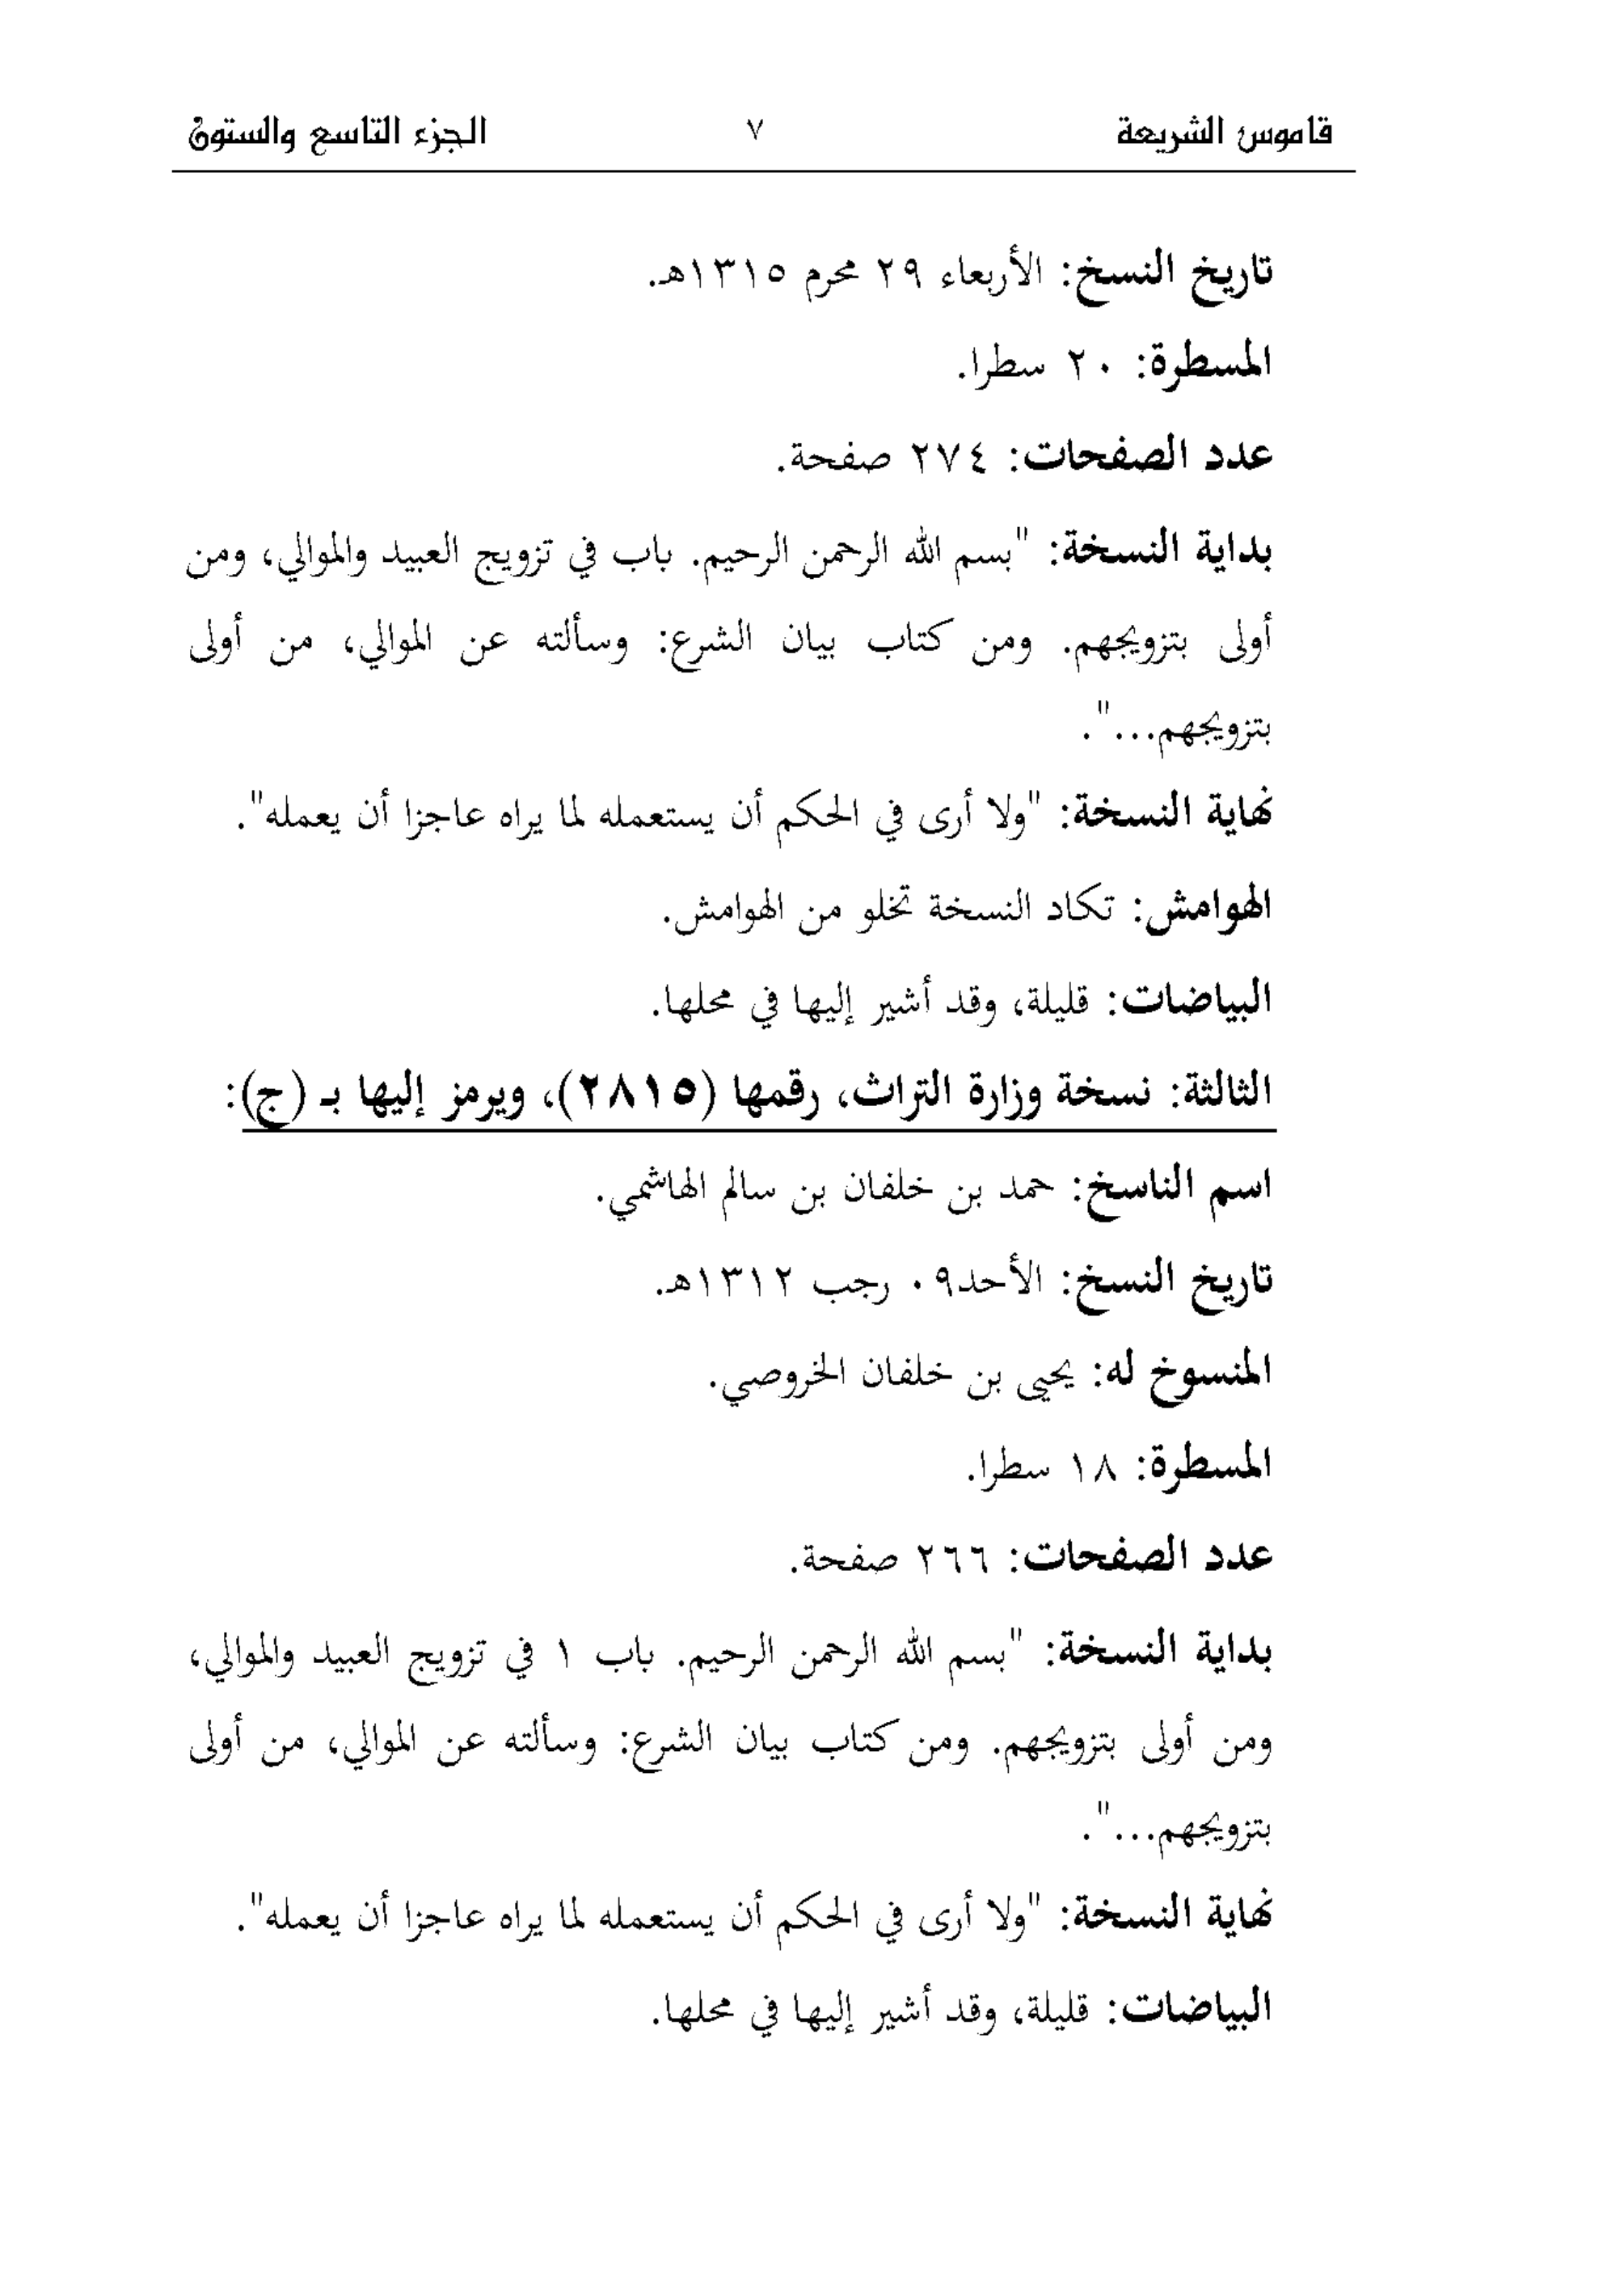 قاموس الشريعة ٧ الجزء التاسع والستون
تاريخ النسخ: الأربعاء ٢٩ محرم ١٣١٥هـ.
المسطرة: ٢٠ سطرا.
عدد الصفحات: ٢٧٤ صفحة.
بداية النسخة: "بسم الله الرحمن الرحيم. باب في تزويج العبيد والموالي، ومن
أولى بتزويجهم. ومن كتاب بيان الشرع: وسألته عن الموالي، من أولى
بتزويجهم...".
نهاية النسخة: "ولا أرى في الحكم أن يستعمله لما يراه عاجزا أن يعمله".
الهوامش: تكاد النسخة تخلو من الهوامش.
البياضات: قليلة، وقد أشير إليها في محلها.
الثالثة: نسخة وزارة التراث، رقمها (٢٨١٥)، ويرمز إليها بـ (ج):
اسم الناسخ: حمد بن خلفان بن سالم الهاشمي.
تاريخ النسخ: الأحد٠٩ رجب ١٣١٢هـ.
المنسوخ له: يحيى بن خلفان الخروصي.
المسطرة: ١٨ سطرا.
عدد الصفحات: ٢٦٦ صفحة.
بداية النسخة: "بسم الله الرحمن الرحيم. باب ١ في تزويج العبيد والموالي،
ومن أولى بتزويجهم. ومن كتاب بيان الشرع: وسألته عن الموالي، من أولى
بتزويجهم...".
نهاية النسخة: "ولا أرى في الحكم أن يستعمله لما يراه عاجزا أن يعمله".
البياضات: قليلة، وقد أشير إليها في محلها.